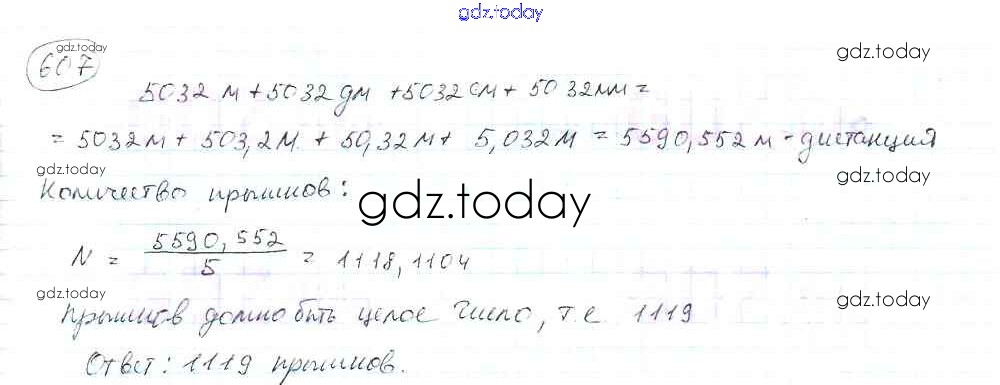 gdz.today
gdz.today
607
gdz.today
5032 м + 5032 дм + 5032 см + 5032 мм =
= 5032 м + 503,2 м + 50,32 м + 5,032 м = 5590,552 м - дистанция
gdz.today
gdz.today
Количество прыжков:
gdz.today
N = 5590,552 / 5 = 1118,1104
gdz.today
gdz.today
Прыжков должно быть целое число, т.е 1119
Ответ: 1119 прыжков.